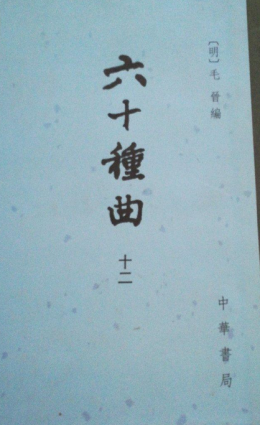 〔明〕毛晉編
六十種曲
十二
中華書局